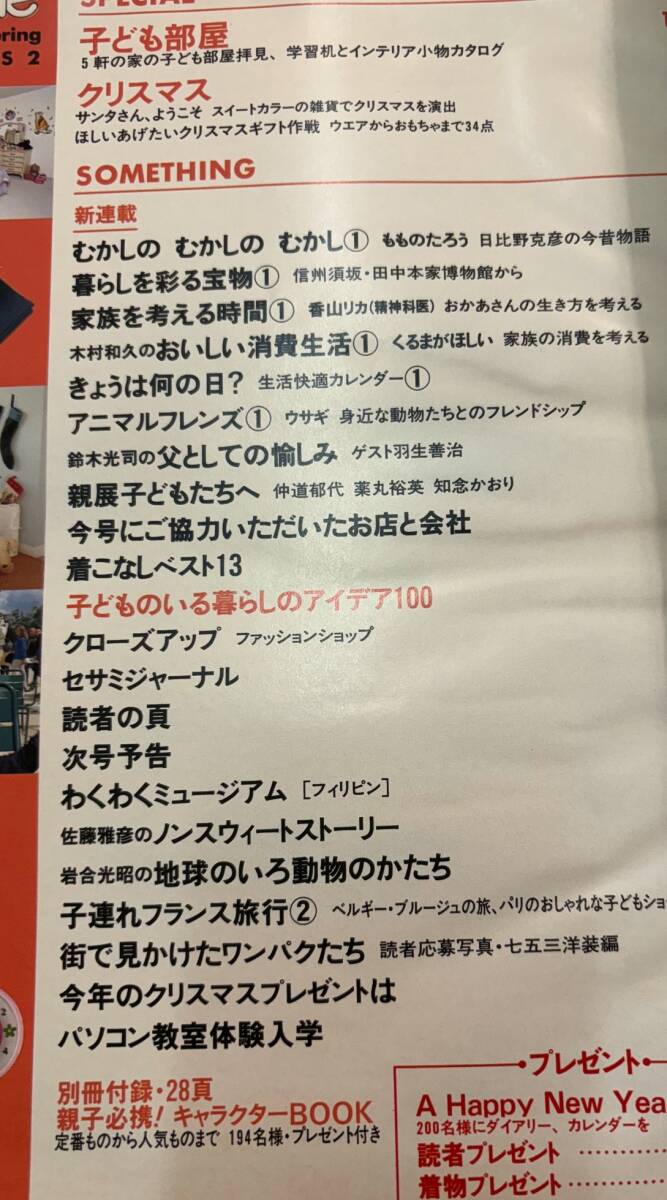 ering
S 2
SPECIAL
子ども部屋
5軒の家の子ども部屋拝見、学習机とインテリア小物カタログ
クリスマス
サンタさん、ようこそ スイートカラーの雑貨でクリスマスを演出
ほしいあげたいクリスマスギフト作戦 ウエアからおもちゃまで34点
SOMETHING
新連載
むかしの むかしの むかし① もものたろう 日比野克彦の今昔物語
暮らしを彩る宝物① 信州須坂・田中本家博物館から
家族を考える時間① 香山リカ(精神科医) おかあさんの生き方を考える
木村和久のおいしい消費生活① くるまがほしい 家族の消費を考える
きょうは何の日? 生活快適カレンダー①
アニマルフレンズ① ウサギ 身近な動物たちとのフレンドシップ
鈴木光司の父としての愉しみ ゲスト羽生善治
親展子どもたちへ 仲道郁代 薬丸裕英 知念かおり
今号にご協力いただいたお店と会社
着こなしベスト13
子どものいる暮らしのアイデア100
クローズアップ ファッションショップ
セサミジャーナル
読者の頁
次号予告
わくわくミュージアム [フィリピン]
佐藤雅彦のノンスウィートストーリー
岩合光昭の地球のいろ動物のかたち
子連れフランス旅行② ベルギー・ブルージュの旅、パリのおしゃれな子どもショ
街で見かけたワンパクたち 読者応募写真・七五三洋装編
今年のクリスマスプレゼントは
パソコン教室体験入学
別冊付録・28頁
親子必携! キャラクターBOOK
定番ものから人気ものまで 194名様・プレゼント付き
プレゼント
A Happy New Yea
200名様にダイアリー、カレンダーを
読者プレゼント ………
着物プレゼント ………